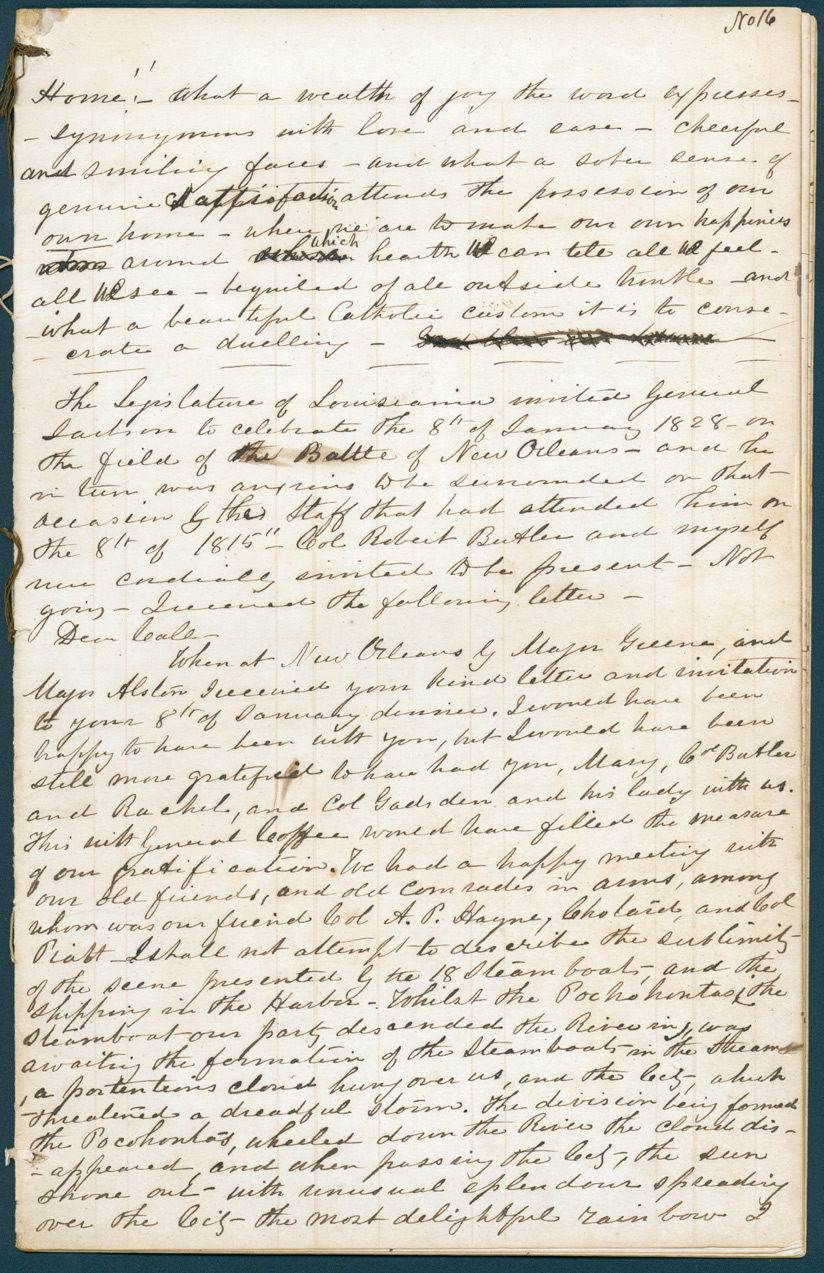 No 16
Home!! - What a wealth of joy the word expresses -
- synonymous with love and ease - cheerful
and smiling faces - and what a sober sense of
genuine satisfaction attends the possession of our
own home - where we are to make our own happiness
around which hearth we can tell all we feel -
all we see - beguiled of all outside trouble - and
what a beautiful Catholic custom it is to conse-
- crate a dwelling -
The Legislature of Louisiana invited General
Jackson to celebrate the 8th of January 1828 - on
the field of the Battle of New Orleans - and he
in turn was anxious to be surrounded on that
occasion by the Staff that had attended him on
the 8th of 1815" - Col Robert Butler and myself
were cordially invited to be present - Not
going - I received the following letter -
Dear Call -
When at New Orleans by Major Greene, and
Major Alston I received your kind letter and invitation
to your 8th of January dinner. I would have been
happy to have been with you, but I would have been
still more gratified to have had you, Mary, Col Butler
and Rachel, and Col Gadsden and his lady with us.
This with General Coffee would have filled the measure
of our gratification. We had a happy meeting with
our old friends, and old comrades in arms, among
whom was our friend Col A. P. Hayne, Chotard, and Col
Piatt - I shall not attempt to describe the sublimity
of the scene presented by the 18 Steam boats, and the
shipping in the Harbor - Whilst the Pochohontas, the
Steamboat our party descended the River in, was
awaiting the formation of the Steamboats in the Stream
, a portentious cloud hung over us, and the City, which
threatened a dreadful storm. The division being formed
the Pocohontas, wheeled down the River the cloud dis-
- appeared, and when passing the City, the sun
shone out - with unusual splendour spreading
over the City - the most delightful rainbow I